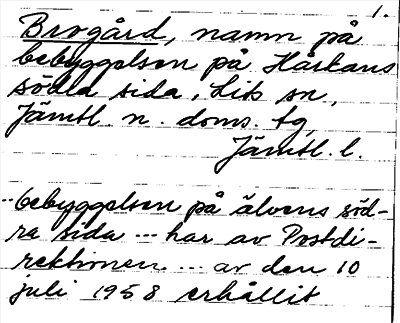 1.
Brogård, namn på
bebyggelsen på Hårkans
södra sida, Lits sn,
Jämtl. n. doms. tg,
Jämtl. l.
"bebyggelsen på älvens söd-
ra sida --- har av Postdi-
rektionen --- av den 10
juli 1958 erhållit